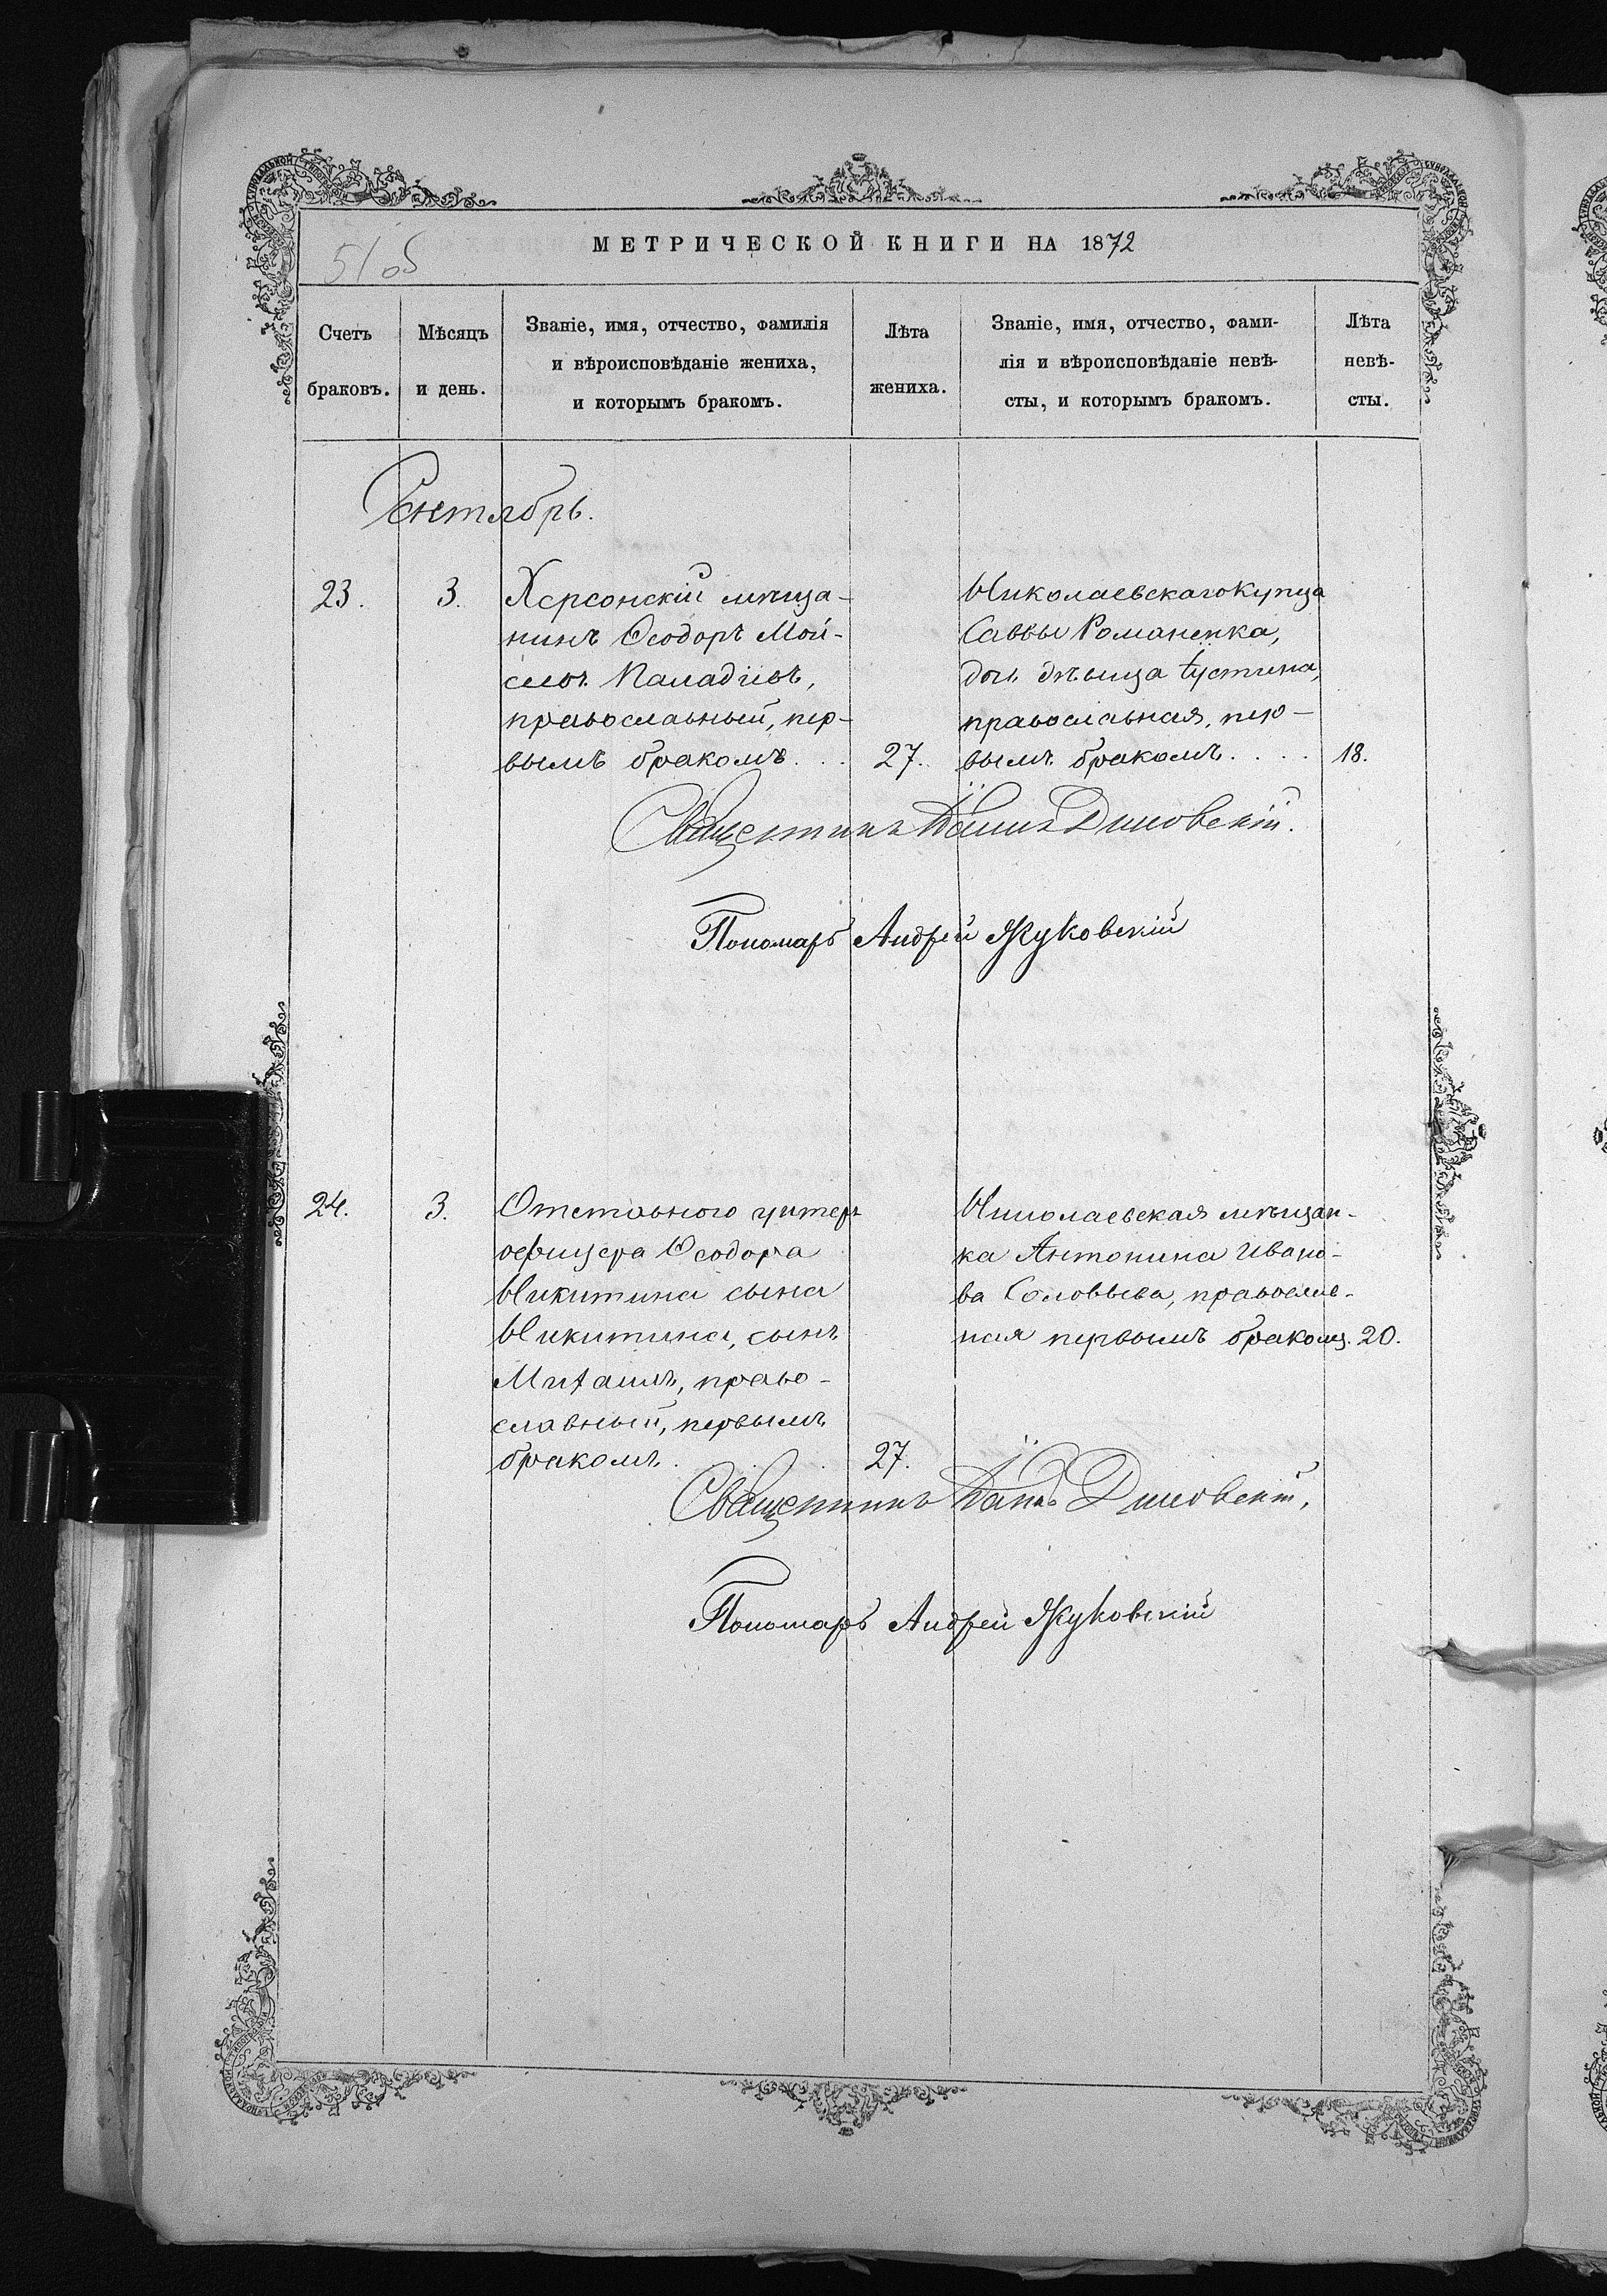 МЕТРИЧЕСКОЙ КНИГИ НА 1872
Счетъ браковъ.
Мѣсяцъ и день.
Званіе, имя, отчество, фамилія
и вѣроисповѣданіе жениха,
и которымъ бракомъ.
Лѣта жениха.
Званіе, имя, отчество, фами-
лія и вѣроисповѣданіе невѣ-
сты, и которымъ бракомъ.
Лѣта невѣ-
сты.
Сентябрь.
23. 3. Херсонскій мѣща-
нинъ Ѳеодоръ Мой-
сеевъ
православный, пер-
вымъ бракомъ . . . 27.
Николаевскаго купца
Саввы Романенка,
дочь дѣвица Іустина,
православная, пер-
вымъ бракомъ . . . . 18.
Священникъ
Пономарь Андрей Жуковскій
24. 3. Отставного унтеръ
офицера Ѳеодора
Никитина сына
Никитина, сынъ
Михаилъ, право-
славный, первымъ
бракомъ . . . 27.
Николаевская мѣщан-
ка Антонина Ивано-
ва Соловьева, православ-
ная первымъ бракомъ. 20.
Священникъ
Пономарь Андрей Жуковскій